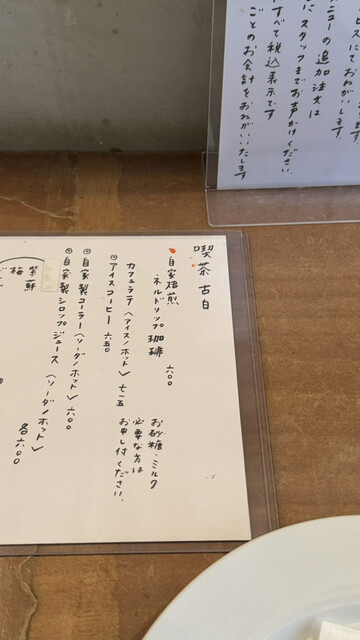 ニューの追加注文は
にスタッフまでお声かけください。
すべて税込表示です
ごとのお会計をおねがいいたします
喫茶 古白
自家焙煎
・ネルドリップ珈琲 六〇〇
お砂糖・ミルク
必要な方は
お申し付ください、
カフェラテ〈アイス/ホット〉 七一五
アイスコーヒー 六五〇
自家製コーラ〈ソーダ/ホット〉 六〇〇
自家製シロップジュース〈ソーダ/ホット〉
各六〇〇
紫蘇
梅